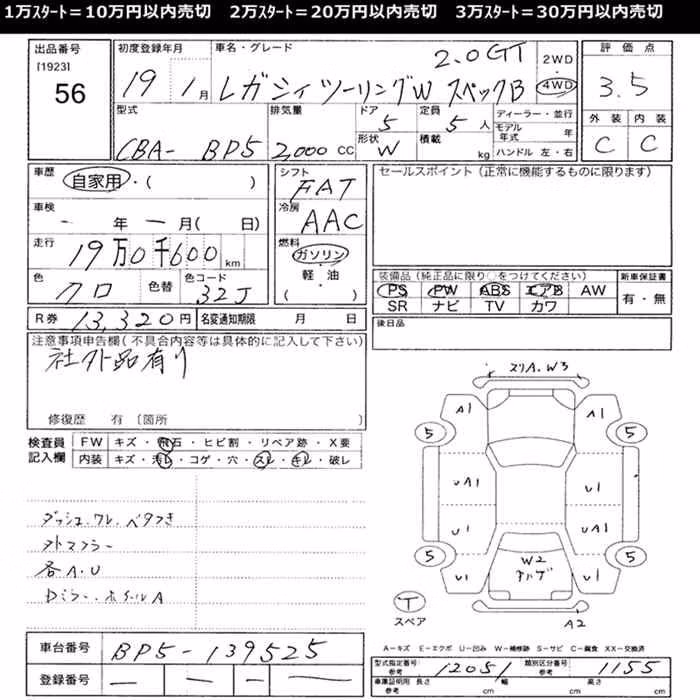 1万ｽﾀｰﾄ＝10万円以内売切　2万ｽﾀｰﾄ＝20万円以内売切　3万ｽﾀｰﾄ＝30万円以内売切
出品番号 初度登録年月 車名・グレード 2.0GT 2WD 評価点
[1923] 19 1月 レガシィツーリングW スペックB 4WD 3.5
56
型式 排気量 ドア 定員 ディーラー・並行 外装 内装
CBA- BP5 2,000 CC 5 5人 モデル年式 年 C C
形状 W 積載 kg ハンドル 左・右
車歴 自家用・( ) シフト FAT セールスポイント（正常に機能するものに限ります）
車検 - 年 - 月( 日) 冷房 AAC
走行 19万0千600km 燃料 ガソリン
軽・油
( )
色 クロ 色替 色コード 32J
装備品（純正品に限り○をつけてください） 新車保証書
PS PW ABS エアB AW 有・無
SR ナビ TV カワ
R券 13,320円 名変通知期限 月 日 後日品
注意事項申告欄（不具合内容等は具体的に記入して下さい）
社外品有り
修復歴 有〔箇所
検査員 FW キズ・飛石・ヒビ割・リペア跡・X要
記入欄 内装 キズ・汚レ・コゲ・穴・スレ・キレ・破レ
スリA.W3
A1 A1
5 5
UA1 U1
U1 UA1
5 5
U1 W2 U1
T
スペア A2
ダッシュワレ.ベタつき
外マフラー
各A.U
Dミラー.ホイルA
車台番号 BP5-139525
登録番号 - - - -
A－キズ E－エクボ U－凹み W－補修跡 S－サビ C－腐食 XX－交換済
型式指定番号 参考 12051 類別区分番号 参考 1155
車庫証明用 参考 長さ cm 幅 cm 高さ cm